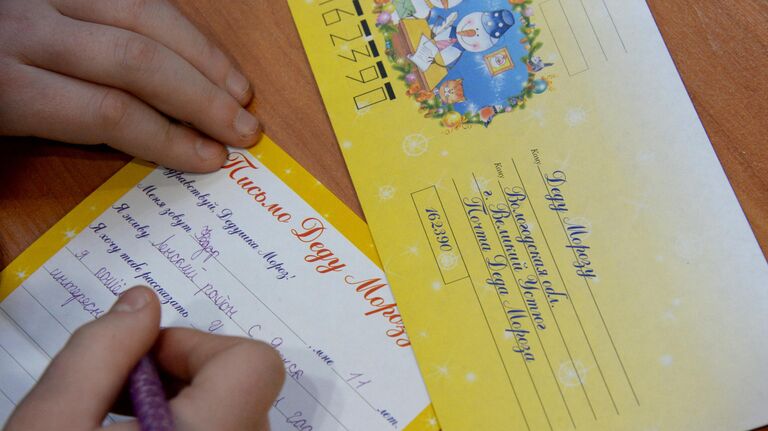 Письмо Деду Морозу
Здравствуй, Дедушка Мороз!
Меня зовут
Я живу район с мне 11 лет.
Я хочу тебе рассказать
я
интересн
162390
Кому Деду Морозу
Куда Вологодская обл.
г. Великий Устюг
Почта Деда Мороза
162390